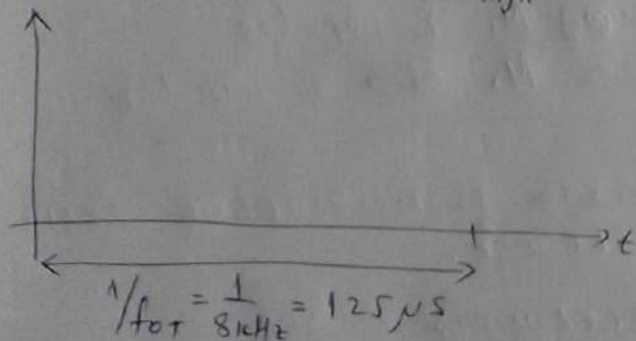 t
1/fот = 1/8kHz = 125 μs